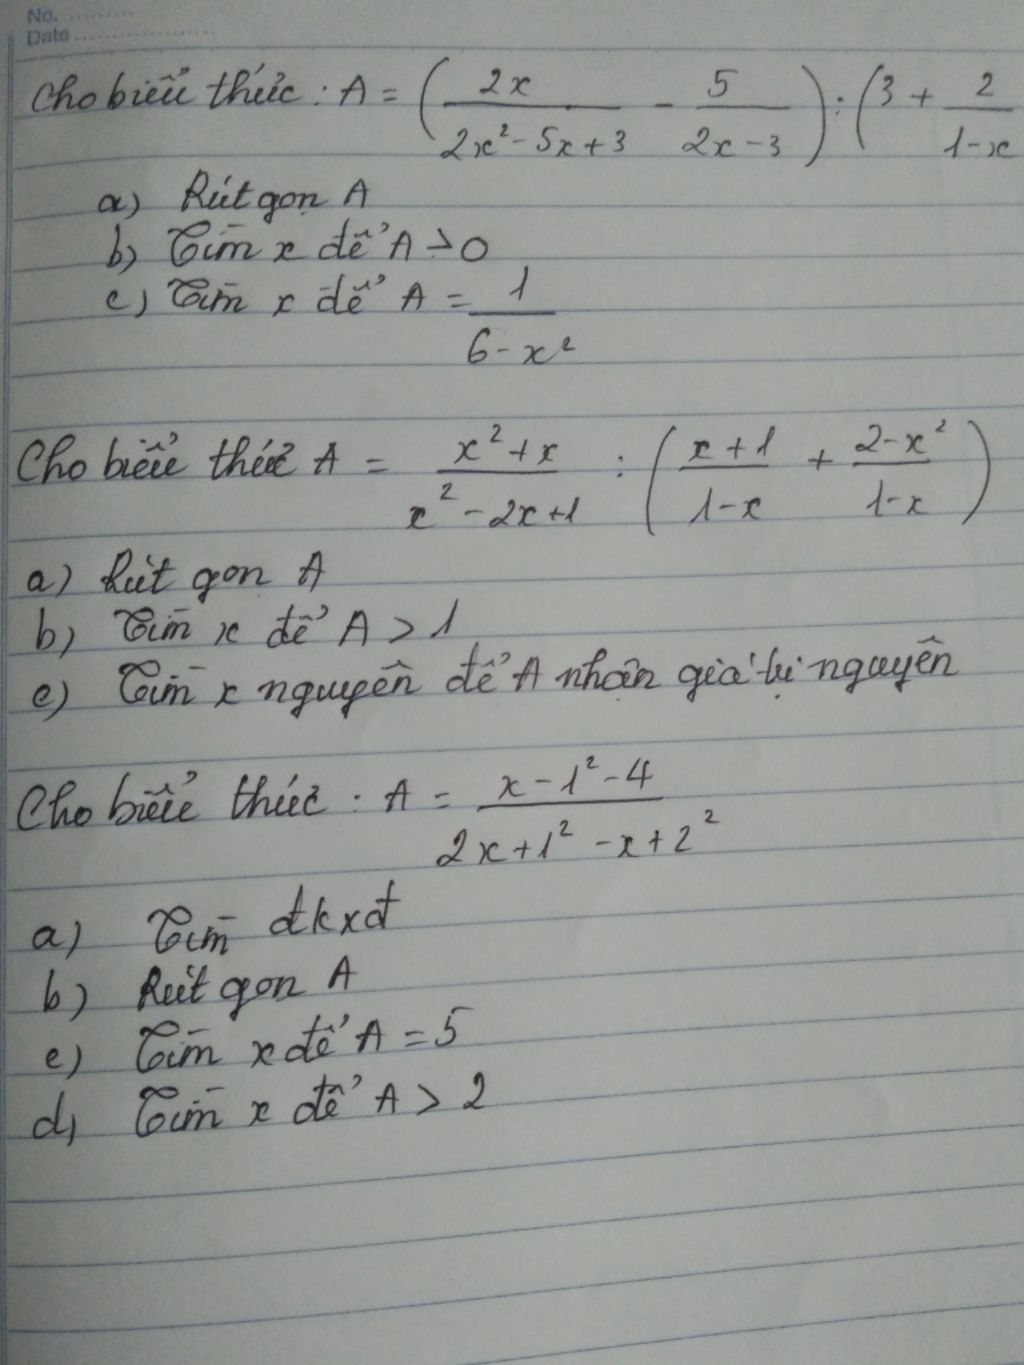 No. ..........
Date ....................
Cho biểu thức : A = ( 2x / (2x² - 5x + 3) - 5 / (2x - 3) ) : ( 3 + 2 / (1 - x)
a) Rút gọn A
b) Tìm x để A > 0
c) Tìm x để A = 1 / (6 - x²)
Cho biểu thức A = (x² + x) / (x² - 2x + 1) : ( (x + 1) / (1 - x) + (2 - x²) / (1 - x) )
a) Rút gọn A
b) Tìm x để A > 1
c) Tìm x nguyên để A nhận giá trị nguyên
Cho biểu thức : A = (x - 1² - 4) / (2x + 1² - x + 2²)
a) Tìm đkxđ
b) Rút gọn A
c) Tìm x để A = 5
d) Tìm x để A > 2